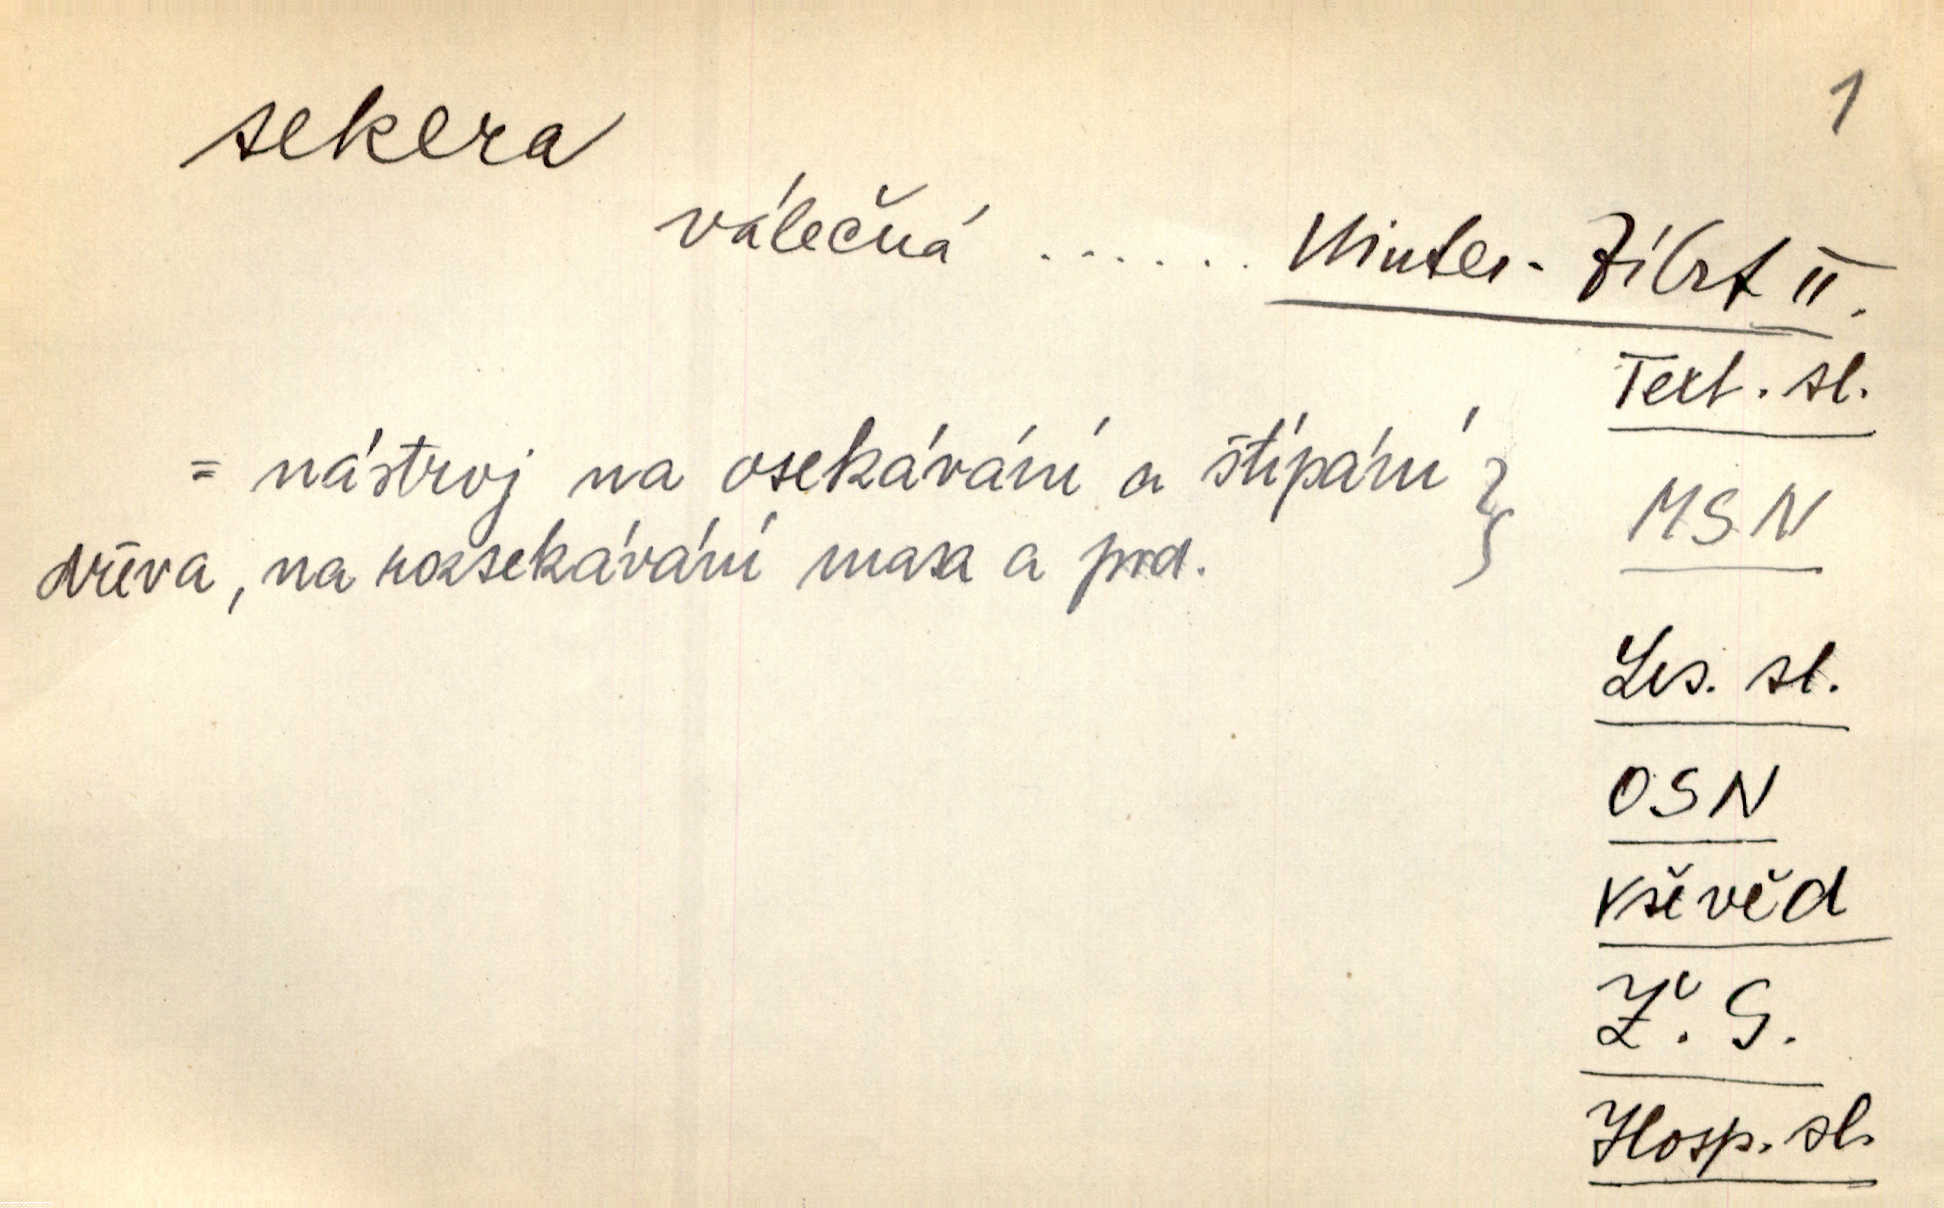 1
sekera
válečná ...... Winter-Zíbrt II.
Text. sl.
= nástroj na osekávání a štípání }
MSN
dřeva, na rozsekávání masa a pod.
Les. sl.
OSN
Vševěd
Ž. G.
Hosp. sl.